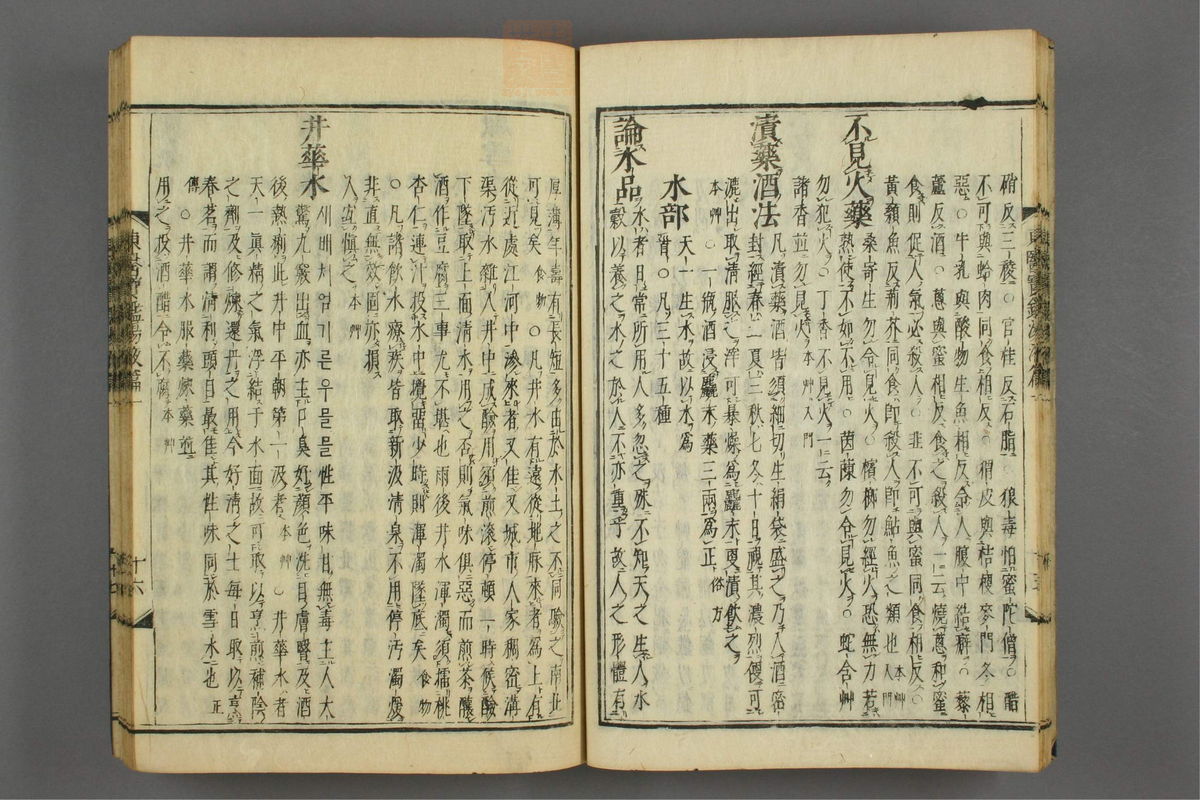 硝反三稜○官桂反石脂○狼毒怕蜜陀僧○醋
不可與蛤肉同食相反○猬皮與桔梗麥門冬相
惡○牛乳與酸物生魚相反令人腹中結癖○藜
蘆反酒○葱與蜜相反食之殺人一云燒葱和蜜
食則促人氣必殺人○韭不可與蜜同食相反○
黃顙魚反荊芥同食卽殺人卽鮎魚之類也本艸入門
不見火藥 桑寄生勿令見火○檳榔勿經火恐無力若
熟使不如不用○茵蔯勿令見火○蛇含艸
勿犯火○丁香不見火一云
諸香並勿見火本艸入門
漬藥酒法 凡漬藥酒皆須細切生絹袋盛之乃入酒密
封經春五夏三秋七冬十日視其濃烈便可
漉出取淸服之滓可暴燥爲麤末更漬飮之
本艸○一甁酒浸麤末藥三兩爲正俗方
水部 天一生水故以水爲
首○凡三十五種
論水品 水者日常所用人多忽之殊不知天之生人水
穀以養之水之於人不亦重乎故人之形體有
厚薄年壽有長短多由於水土之不同驗之南北
可見矣食物○凡井水有遠從地脉來者爲上有
從近處江河中滲來者又佳又城市人家稠密溝
渠汚水雜入井中成鹼用須煎滾停頓一時候鹼
下墜取上面淸水用之否則氣味俱惡而煎茶釀
酒作豆腐三事尤不堪也雨後井水渾濁須擂桃
杏仁連汁投水中攪留少時則渾濁墜底矣食物
○凡諸飮水療疾皆取新汲淸泉不用停汚濁煖
非直無效固亦損
人宜愼之本艸
井華水 새배처엄기른우믈믈性平味甘無毒主人大
驚九竅出血亦主口臭好顔色洗目膚瞖及酒
後熱痢此井中平朝第一汲者本艸○井華水者
天一眞精之氣浮結于水面故可取以烹煎補陰
之劑及修煉還丹之用今好淸之士每日取以烹
春茗而謂淸利頭目最佳其性味同於雪水也正
傳○井華水服藥煉藥並
用之投酒醋令不腐本艸
十六